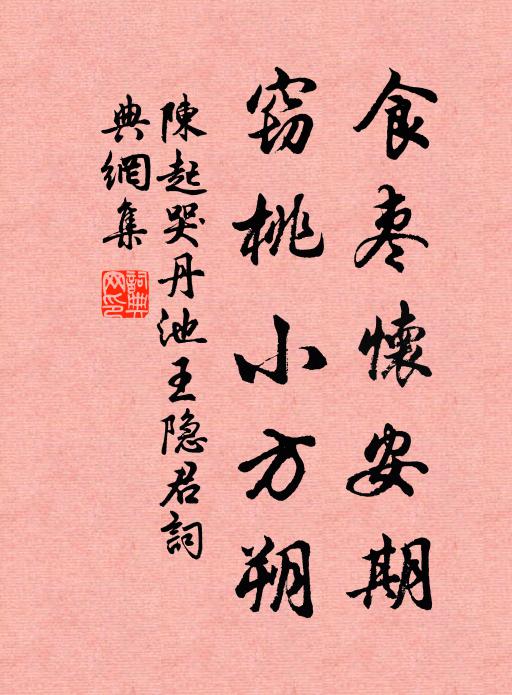 食枣懷安期
窃桃小方朔
陳起哭丹池王隐君詞
典網集
詞典网印